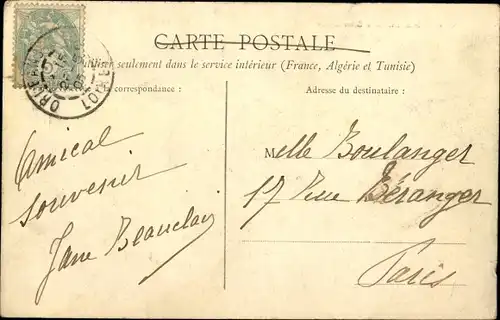 CARTE POSTALE
utiliser seulement dans le service intérieur (France, Algérie et Tunisie)
correspondance :
Adresse du destinataire :
ORLÉANS
LOIRET
Amical
souvenir
Jane Beauclair
Melle Boulanger
17 Rue Béranger
Paris